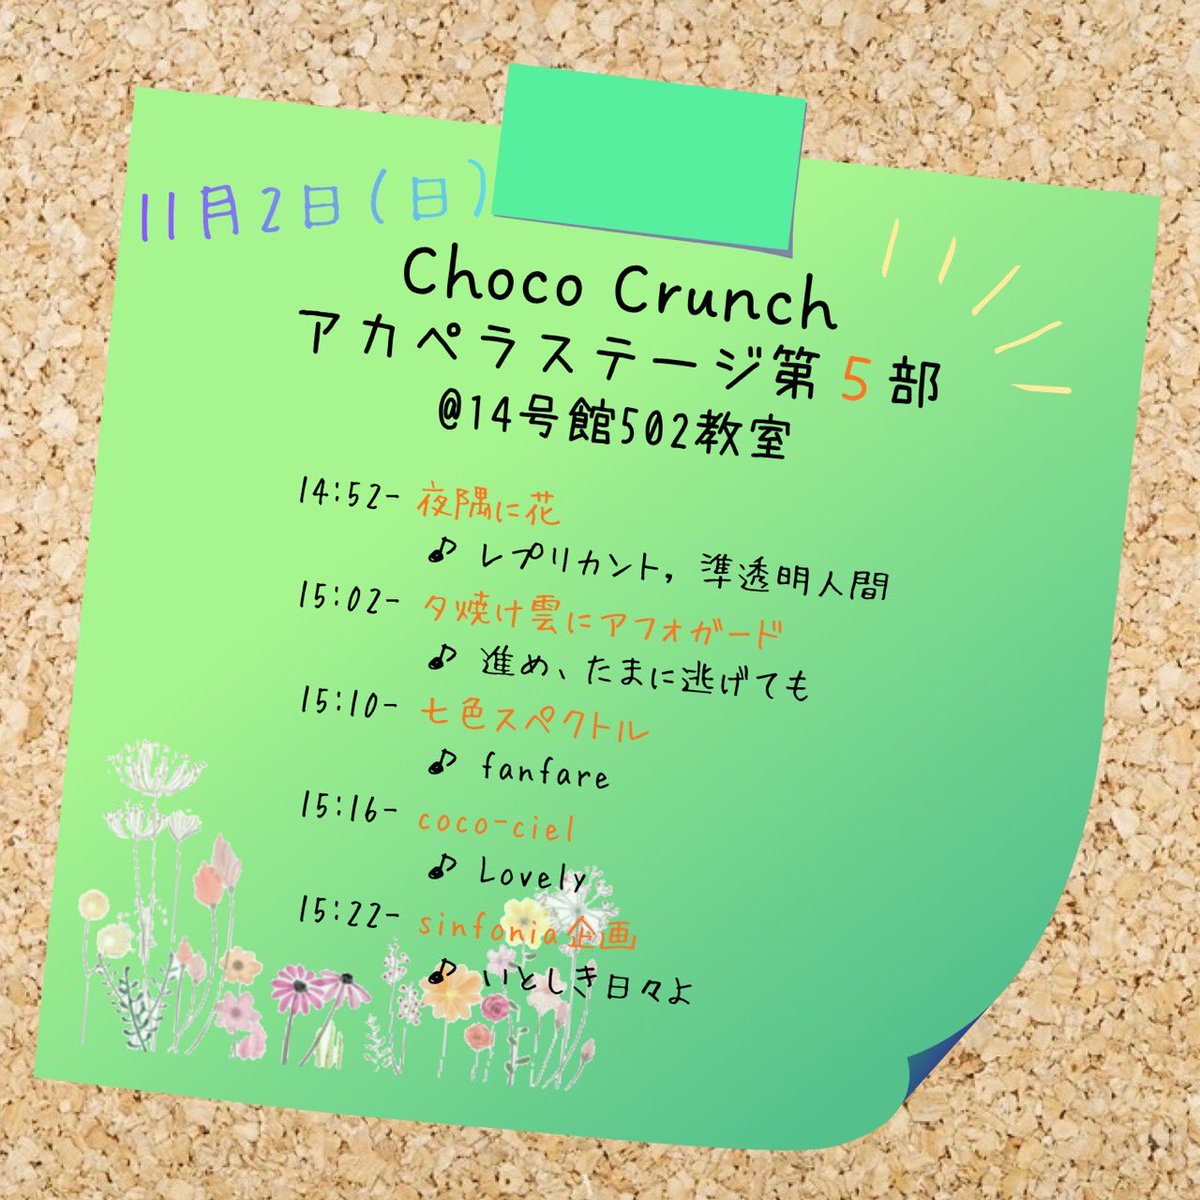 11月2日(日)
Choco Crunch
アカペラステージ第5部
@14号館502教室
14:52- 夜隅に花
♪ レプリカント, 準透明人間
15:02- 夕焼け雲にアフォガード
♪ 進め、たまに逃げても
15:10- 七色スペクトル
♪ fanfare
15:16- coco-ciel
♪ Lovely
15:22- sinfonia企画
♪ いとしき日々よ